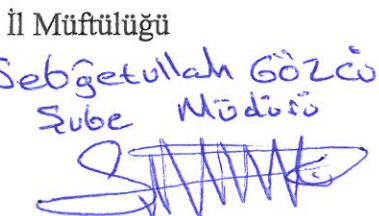 İl Müftülüğü
Sebğetullah GÖZCÜ
Şube Müdürü